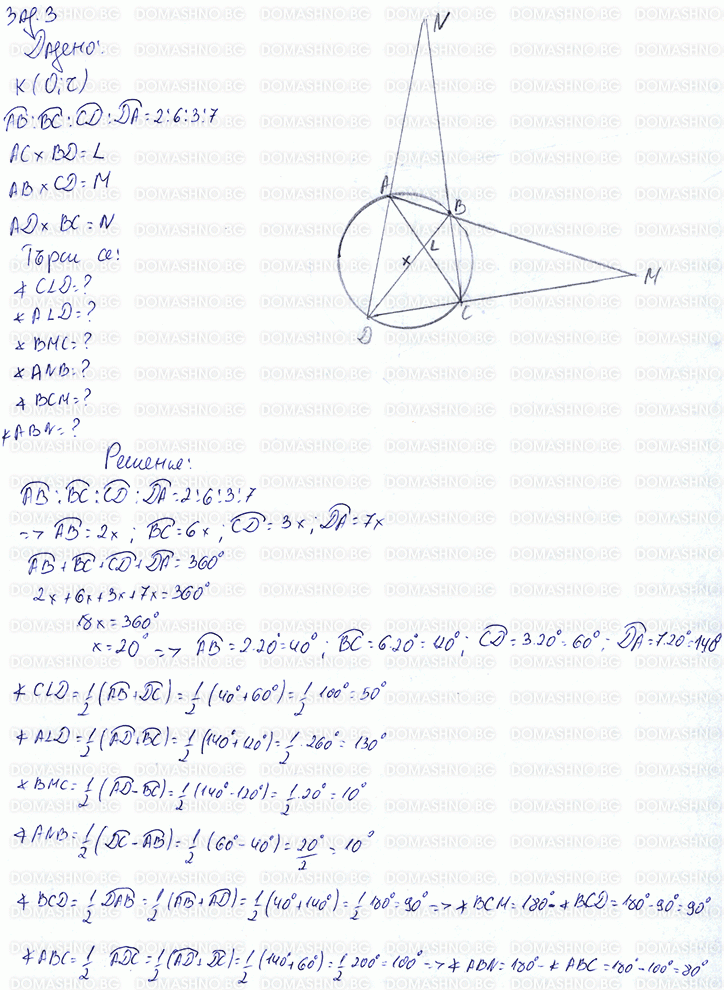 Зад. 3
Дадено:
K (O; r)
AB : BC : CD : DA = 2:6:3:7
AC x BD = L
AB x CD = M
AD x BC = N
Търси се:
∢ CLD = ?
∢ ALD = ?
∢ BMC = ?
∢ ANB = ?
∢ BCM = ?
∢ ABN = ?
N
A
B
L
x
M
C
D
Решение:
AB : BC : CD : DA = 2:6:3:7
=> AB = 2x ; BC = 6x ; CD = 3x ; DA = 7x
AB + BC + CD + DA = 360°
2x + 6x + 3x + 7x = 360°
18x = 360°
x = 20° => AB = 2.20° = 40° ; BC = 6.20° = 120° ; CD = 3.20° = 60° ; DA = 7.20° = 140
∢ CLD = 1/2 (AB + DC) = 1/2 (40° + 60°) = 1/2 100° = 50°
∢ ALD = 1/2 (AD + BC) = 1/2 (140° + 120°) = 1/2 . 260° = 130°
∢ BMC = 1/2 (AD - BC) = 1/2 (140° - 120°) = 1/2 . 20° = 10°
∢ ANB = 1/2 (DC - AB) = 1/2 (60° - 40°) = 20°/2 = 10°
∢ BCD = 1/2 DAB = 1/2 (AB + AD) = 1/2 (40° + 140°) = 1/2 180° = 90° => ∢ BCM = 180° - ∢ BCD = 180° - 90° = 90°
∢ ABC = 1/2 ADC = 1/2 (AD + DC) = 1/2 (140° + 60°) = 1/2 200° = 100° => ∢ ABN = 180° - ∢ ABC = 180° - 100° = 80°
DOMASHNO.BG